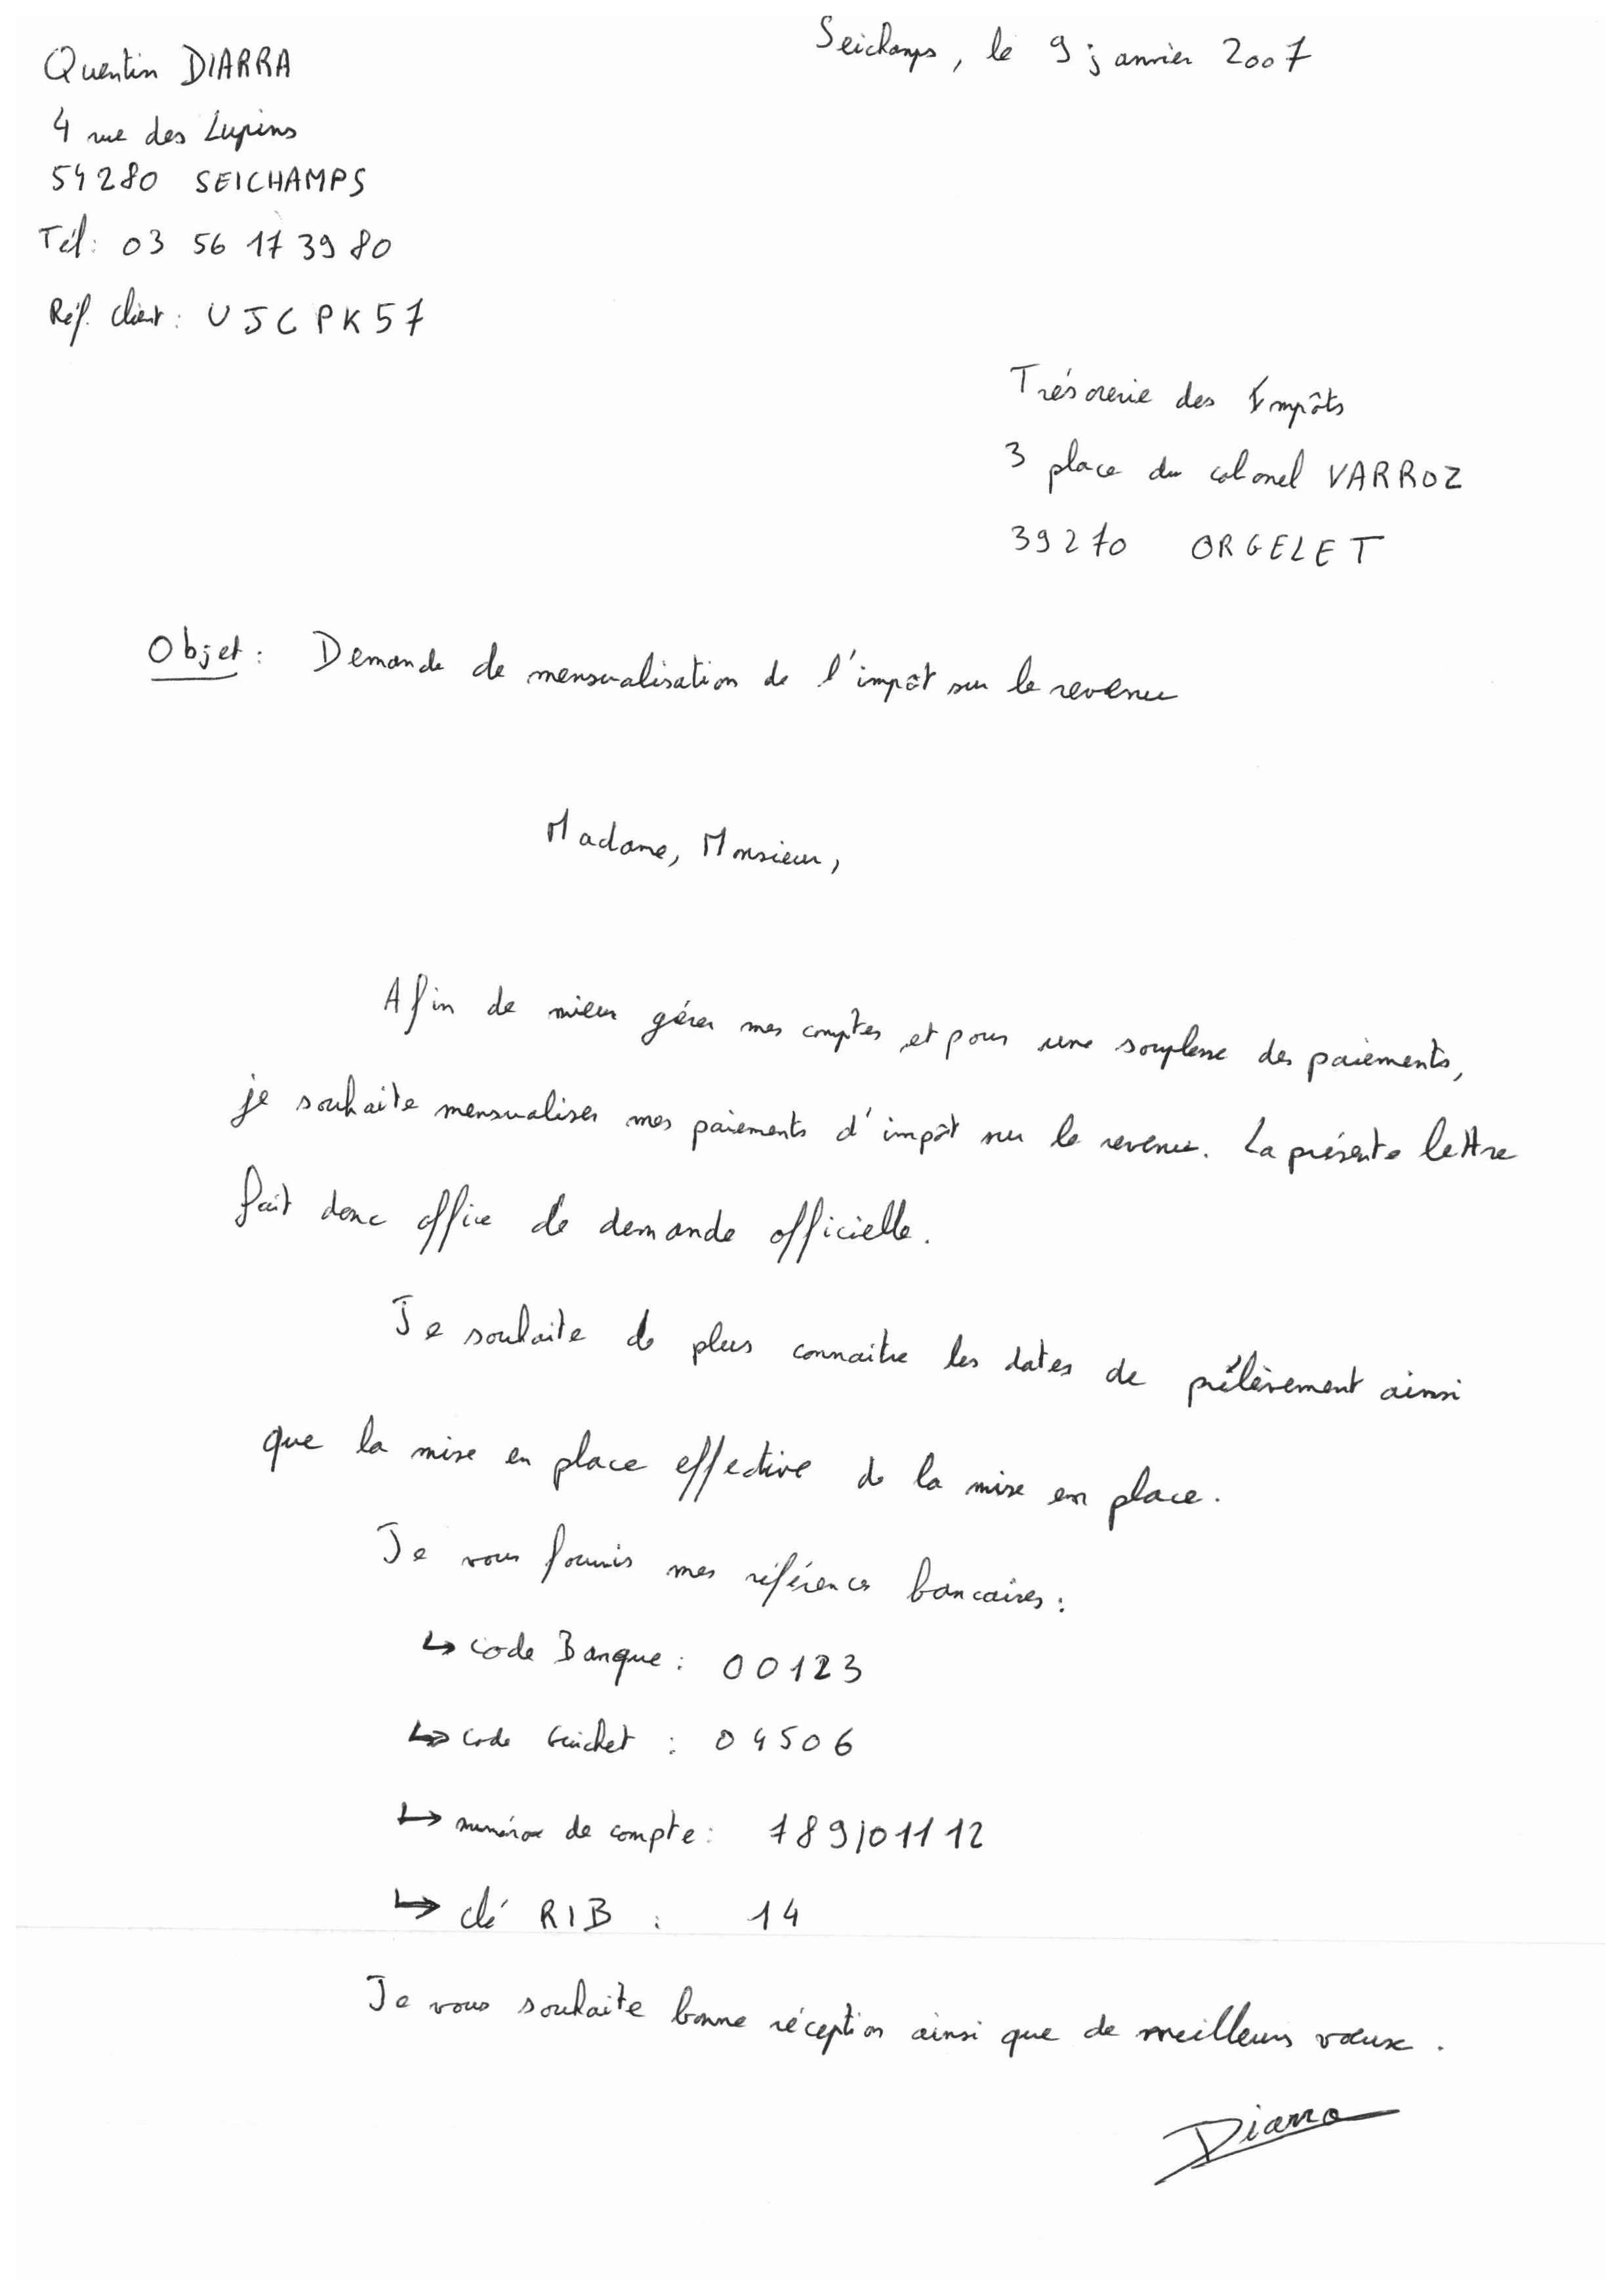 Quentin DIARRA
4 rue des Lupins
54280 SEICHAMPS
Tél: 03 56 17 39 80
Réf. client: UJCPK57
Seichamps, le 9 janvier 2007
Trésorerie des Impôts
3 place du colonel VARROZ
39270 ORGELET
Objet: Demande de mensualisation de l'impôt sur le revenu
Madame, Monsieur,
Afin de mieux gérer mes comptes et pour une souplesse des paiements,
je souhaite mensualiser mes paiements d'impôt sur le revenu. La présente lettre
fait donc office de demande officielle.
Je souhaite de plus connaitre les dates de prélèvement ainsi
que la mise en place effective de la mise en place.
Je vous fournis mes références bancaires:
↳ code Banque: 00123
↳ code Guichet: 04506
↳ numéro de compte: 789101112
↳ clé RIB: 14
Je vous souhaite bonne réception ainsi que de meilleurs vœux.
Diarra